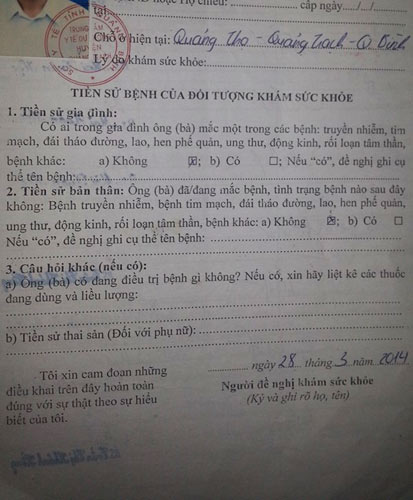 cấp ngày / /
tại:
Chỗ ở hiện tại: Quảng Thọ - Quảng Trạch - Q. Bình
Lý do khám sức khỏe:
TIỀN SỬ BỆNH CỦA ĐỐI TƯỢNG KHÁM SỨC KHỎE
1. Tiền sử gia đình:
Có ai trong gia đình ông (bà) mắc một trong các bệnh: truyền nhiễm, tim
mạch, đái tháo đường, lao, hen phế quản, ung thư, động kinh, rối loạn tâm thần,
bệnh khác: a) Không ☒; b) Có ☐; Nếu “có”, đề nghị ghi cụ
thể tên bệnh:
2. Tiền sử bản thân: Ông (bà) đã/đang mắc bệnh, tình trạng bệnh nào sau đây
không: Bệnh truyền nhiễm, bệnh tim mạch, đái tháo đường, lao, hen phế quản,
ung thư, động kinh, rối loạn tâm thần, bệnh khác: a) Không ☒; b) Có ☐
Nếu “có”, đề nghị ghi cụ thể tên bệnh:
3. Câu hỏi khác (nếu có):
a) Ông (bà) có đang điều trị bệnh gì không? Nếu có, xin hãy liệt kê các thuốc
đang dùng và liều lượng:
b) Tiền sử thai sản (Đối với phụ nữ):
Tôi xin cam đoan những
điều khai trên đây hoàn toàn
đúng với sự thật theo sự hiểu
biết của tôi.
ngày 28 tháng 3 năm 2014
Người đề nghị khám sức khỏe
(Ký và ghi rõ họ, tên)